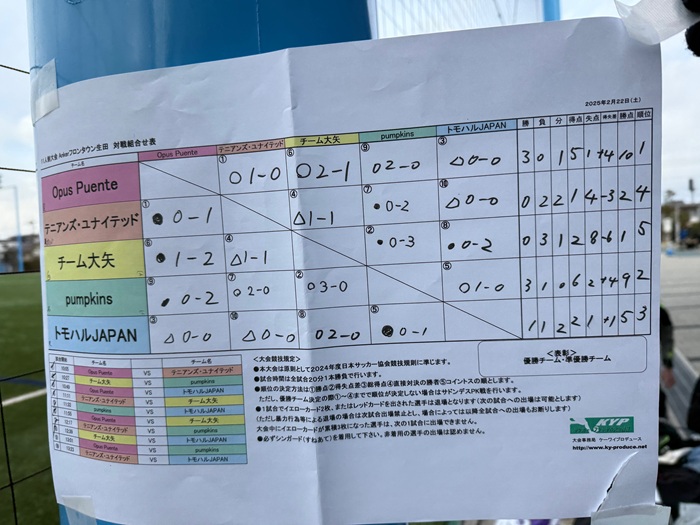 2025年2月22日(土)
11人制大会 Ankerフロンタウン生田 対戦組合せ表
チーム名 Opus Puente テニアンズ・ユナイテッド チーム大矢 pumpkins トモハルJAPAN 勝 負 分 得点 失点 得失差 勝点 順位
Opus Puente ① ○1-0 ⑥ ○2-1 ⑨ ○2-0 ③ △0-0 3 0 1 5 1 +4 10 1
テニアンズ・ユナイテッド ① ●0-1 ④ △1-1 ⑦ ●0-2 ⑩ △0-0 0 2 2 1 4 -3 2 4
チーム大矢 ⑥ ●1-2 ④ △1-1 ② ●0-3 ⑧ ●0-2 0 3 1 2 8 -6 1 5
pumpkins ●0-2 ⑦ ○2-0 ② ○3-0 ⑤ ○1-0 3 1 0 6 2 +4 9 2
トモハルJAPAN ③ △0-0 ⑩ △0-0 ⑧ ○2-0 ⑤ ●0-1 1 1 2 2 1 +1 5 3
チーム名 チーム名
Opus Puente VS テニアンズ・ユナイテッド
チーム大矢 VS pumpkins
Opus Puente VS トモハルJAPAN
VS チーム大矢
pumpkins VS トモハルJAPAN
Opus Puente VS チーム大矢
VS pumpkins
チーム大矢 VS トモハルJAPAN
Opus Puente VS pumpkins
テニアンズ・ユナイテッド VS トモハルJAPAN
<大会競技規定>
●本大会は原則として2024年度日本サッカー協会競技規則に準じます。
●試合時間は全試合20分1本勝負で行います。
●順位の決定方法は①勝点②得失点差③総得点④直接対決の勝者⑤コイントスの順とします。
ただし、優勝チーム決定の際①~④までで順位が決定しない場合はサドンデスPK戦を行います。
●1試合でイエローカード2枚、またはレッドカードを出された選手は退場となります(次の試合への出場は可能とします)
(ただし暴力行為等による退場の場合は次試合出場禁止とし、場合によっては以降全試合への出場もお断りします)
大会中にイエローカードが累積3枚になった選手は、次の1試合に出場できません。
●必ずシンガード(すねあて)を着用して下さい。非着用の選手の出場は認めません。
<表彰>
優勝チーム・準優勝チーム
KYP
大会事務局 ケーワイプロデュース
http://www.ky-produce.net